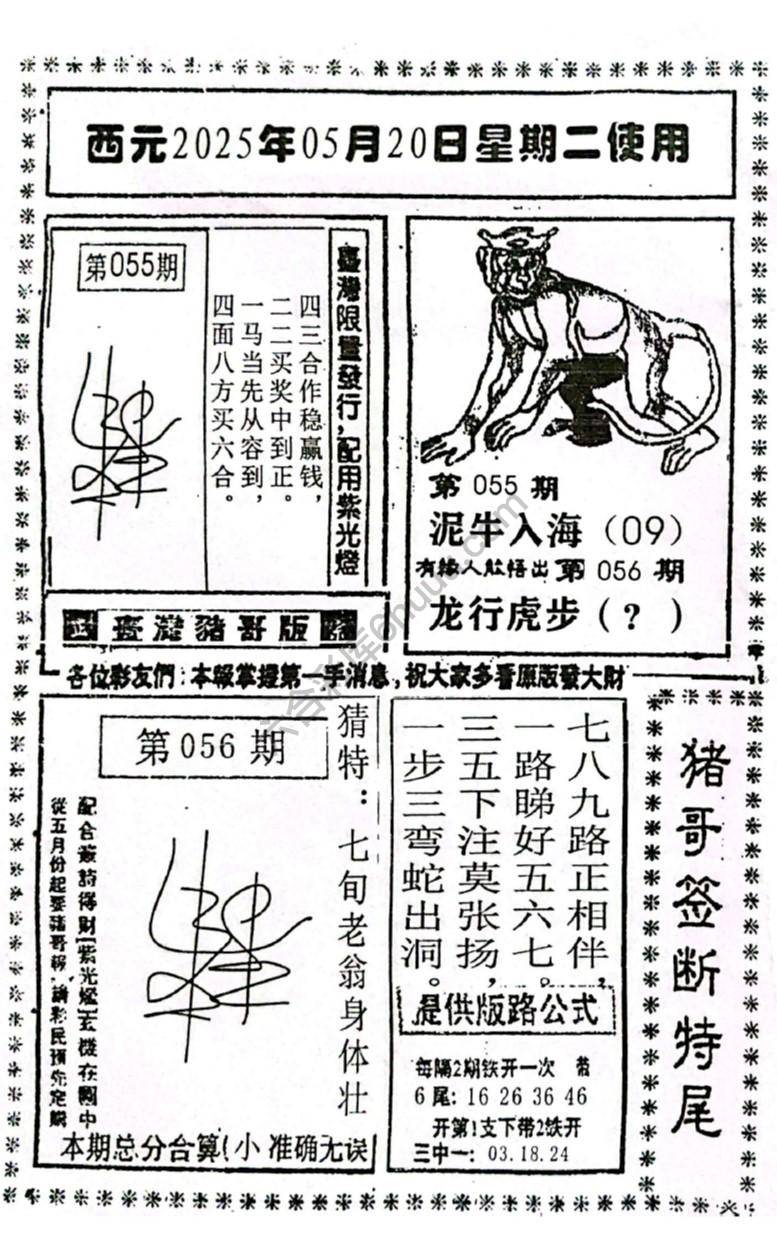 西元2025年05月20日星期二使用
第055期
臺灣限量發行,配用紫光燈
四三合作稳赢钱,
二二买奖中到正。
一马当先从容到,
四面八方买六合。
臺灣豬哥版
第 055 期
泥牛入海（09）
有緣人能悟出 第 056 期
龙行虎步（？）
各位彩友們:本報掌握第一手消息,祝大家多看原版發大財
第 056 期
猜特：七旬老翁身体壮
配合簽詩得財|紫光燈|玄機在圖中
從五月份起要豬哥報,請彩民預先定購
本期总分合算(小 准确无误
七八九路正相伴,
一路睇好五六七。
三五下注莫张扬,
一步三弯蛇出洞。
提供版路公式
每隔2期铁开一次 带
6 尾: 16 26 36 46
开第1支下带2铁开
三中一: 03.18.24
猪哥签断特尾